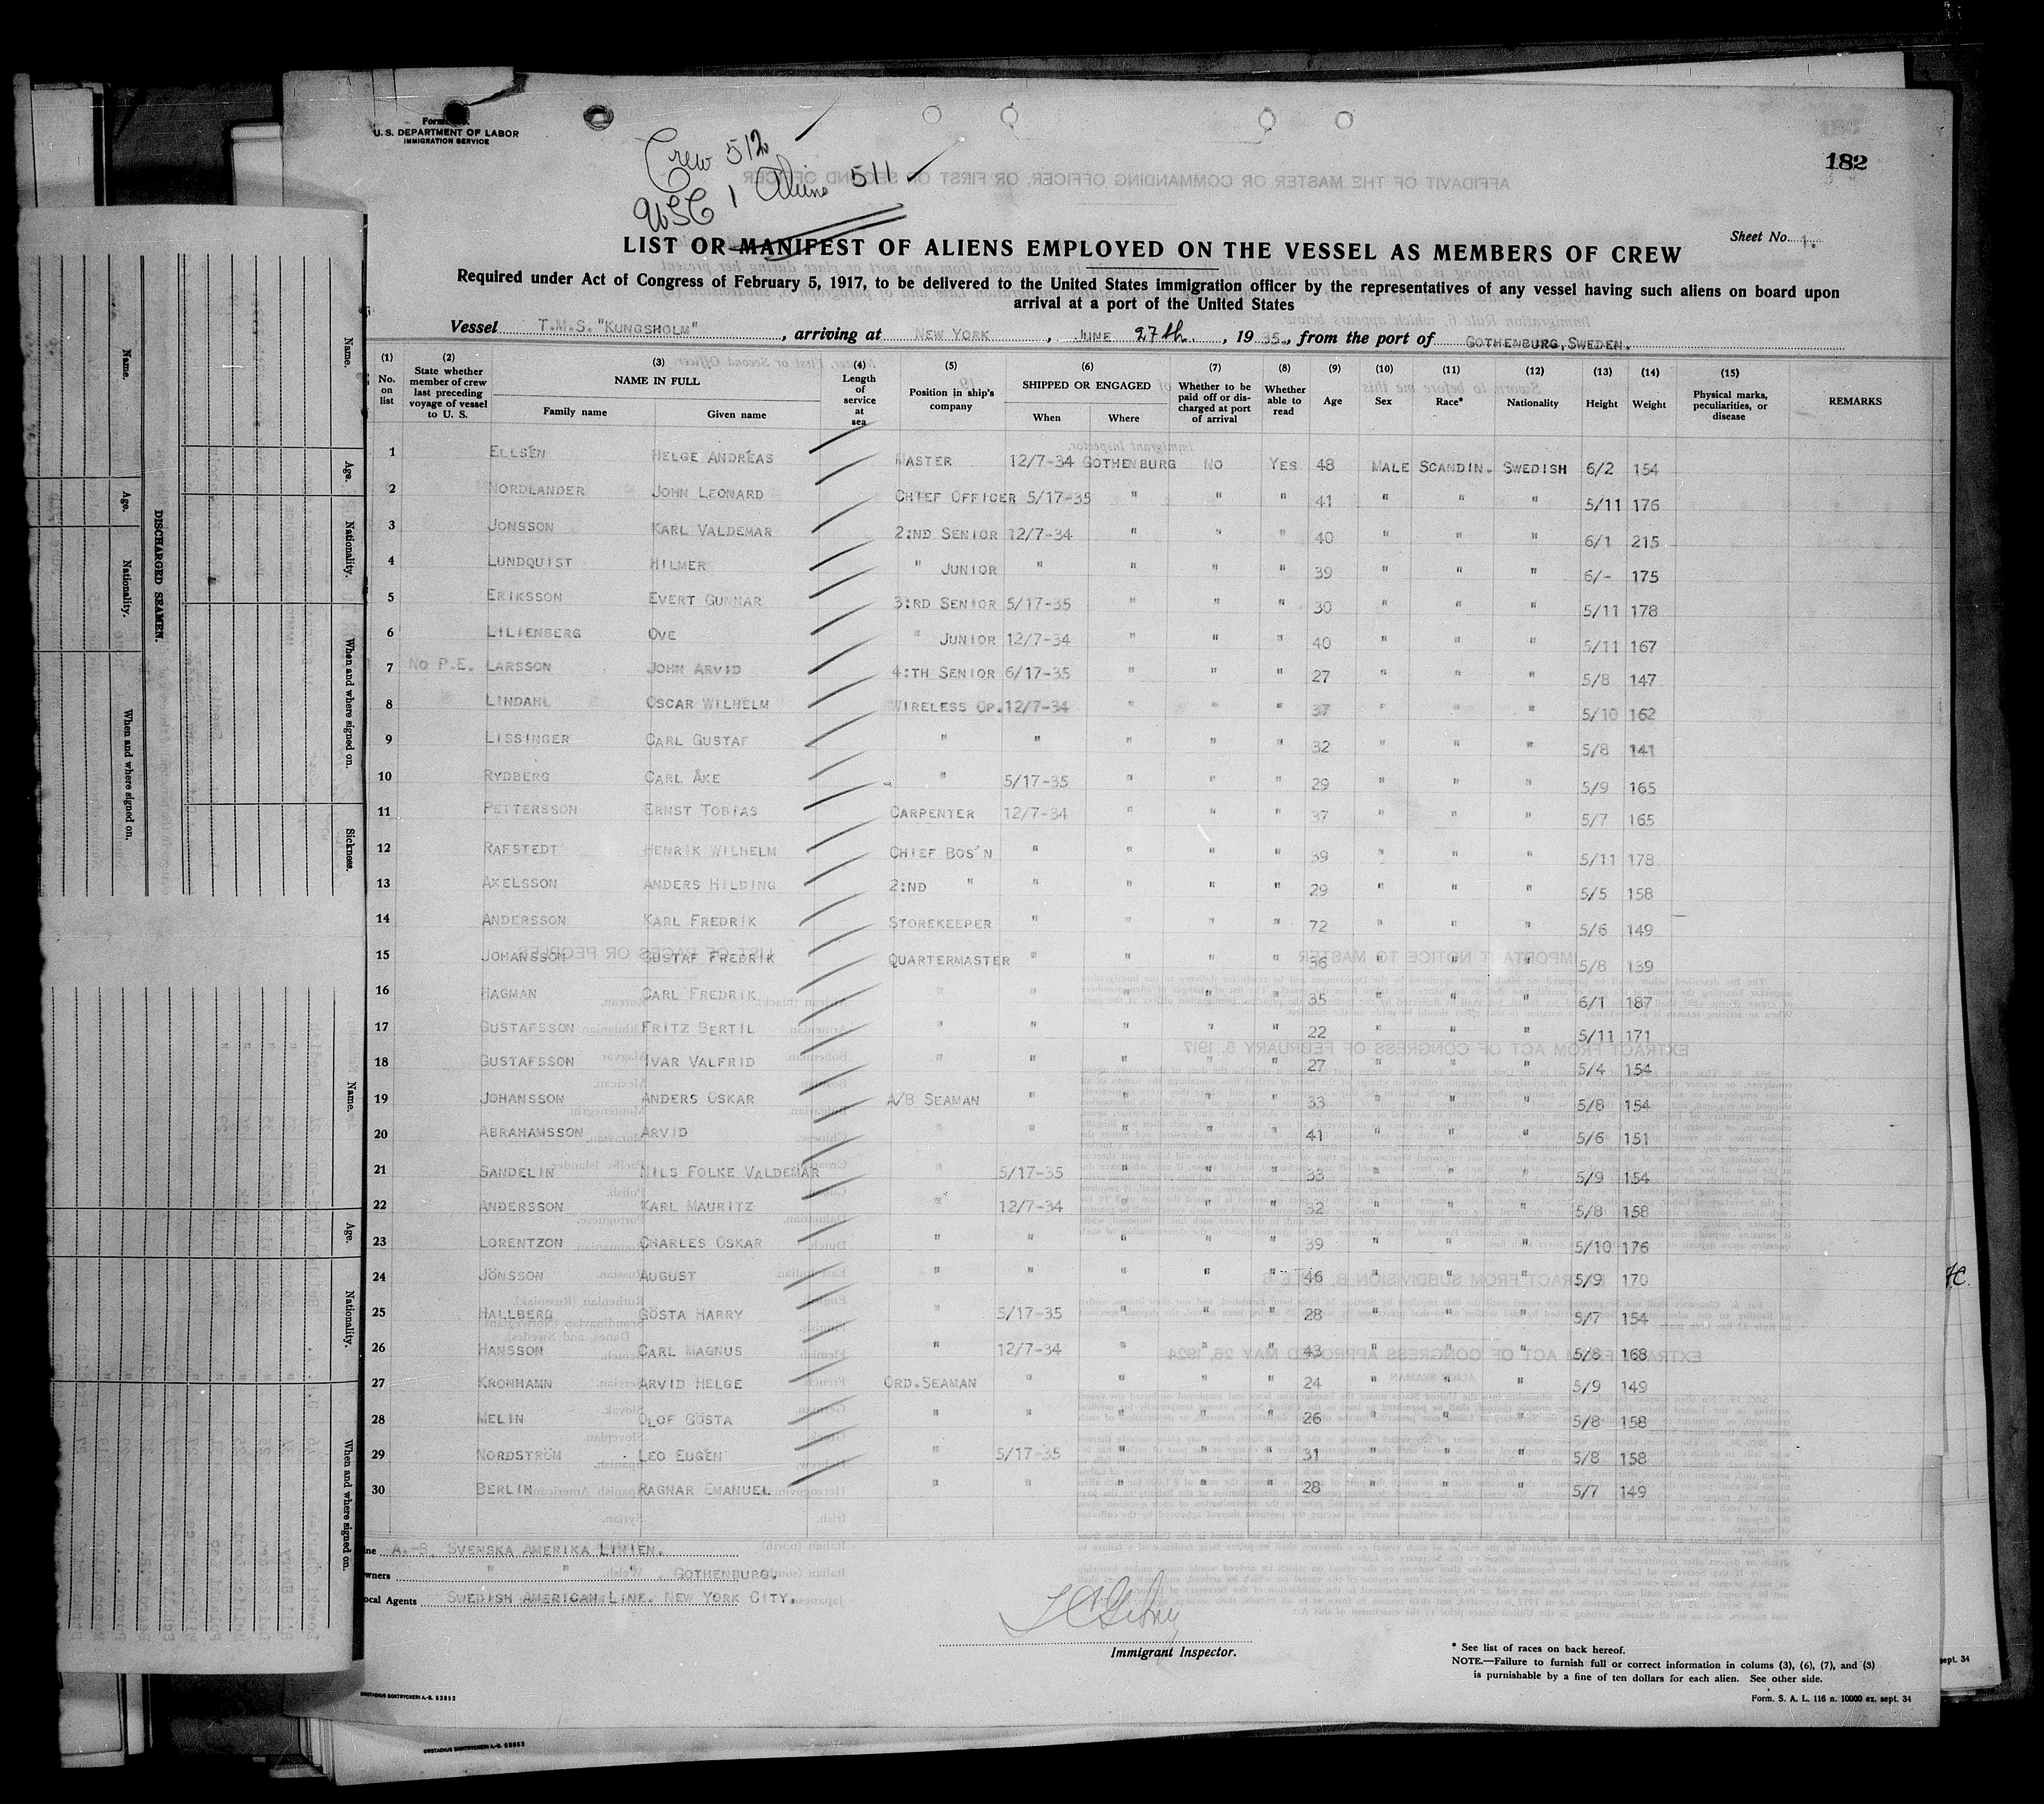 U.S. DEPARTMENT OF LABOR
IMMIGRATION SERVICE
Crew 512
USC 1 Aliens 511
182
Sheet No. 1.
LIST OR MANIFEST OF ALIENS EMPLOYED ON THE VESSEL AS MEMBERS OF CREW
Required under Act of Congress of February 5, 1917, to be delivered to the United States immigration officer by the representatives of any vessel having such aliens on board upon
arrival at a port of the United States
Vessel T.M.S. "KUNGSHOLM", arriving at NEW YORK, JUNE 27th, 1935, from the port of GOTHENBURG, SWEDEN.
(1) No. on list (2) State whether member of crew last preceding voyage of vessel to U. S. (3) NAME IN FULL Family name Given name (4) Length of service at sea (5) Position in ship's company (6) SHIPPED OR ENGAGED When Where (7) Whether to be paid off or discharged at port of arrival (8) Whether able to read (9) Age (10) Sex (11) Race* (12) Nationality (13) Height (14) Weight (15) Physical marks, peculiarities, or disease REMARKS
1 ELLSÉN HELGE ANDREAS MASTER 12/7-34 GOTHENBURG NO YES 48 MALE SCANDIN. SWEDISH 6/2 154
2 NORDLANDER JOHN LEONARD CHIEF OFFICER 5/17-35 " " " 41 " " " 5/11 176
3 JONSSON KARL VALDEMAR 2:ND SENIOR 12/7-34 " " " 40 " " " 6/1 215
4 LUNDQUIST HILMER " JUNIOR " " " " 39 " " " 6/- 175
5 ERIKSSON EVERT GUNNAR 3:RD SENIOR 5/17-35 " " " 30 " " " 5/11 178
6 LILIENBERG OVE " JUNIOR 12/7-34 " " " 40 " " " 5/11 167
7 NO P.E. LARSSON JOHN ARVID 4:TH SENIOR 6/17-35 " " " 27 " " " 5/8 147
8 LINDAHL OSCAR WILHELM WIRELESS OP. 12/7-34 " " " 37 " " " 5/10 162
9 LISSINGER CARL GUSTAF " " " " " 32 " " " 5/8 141
10 RYDBERG CARL ÅKE " 5/17-35 " " " 29 " " " 5/9 165
11 PETTERSSON ERNST TOBIAS CARPENTER 12/7-34 " " " 37 " " " 5/7 165
12 RAFSTEDT HENRIK WILHELM CHIEF BOS'N " " " " 39 " " " 5/11 178
13 AXELSSON ANDERS HILDING 2:ND " " " " " 29 " " " 5/5 158
14 ANDERSSON KARL FREDRIK STOREKEEPER " " " " 72 " " " 5/6 149
15 JOHANSSON GUSTAF FREDRIK QUARTERMASTER " " " " 36 " " " 5/8 139
16 HAGMAN CARL FREDRIK " " " " " 35 " " " 6/1 187
17 GUSTAFSSON FRITZ BERTIL " " " " " 22 " " " 5/11 171
18 GUSTAFSSON IVAR VALFRID " " " " " 27 " " " 5/4 154
19 JOHANSSON ANDERS OSKAR A/B SEAMAN " " " " 33 " " " 5/8 154
20 ABRAHAMSSON ARVID " " " " " 41 " " " 5/6 151
21 SANDELIN NILS FOLKE VALDEMAR " 5/17-35 " " " 33 " " " 5/9 154
22 ANDERSSON KARL MAURITZ " 12/7-34 " " " 32 " " " 5/8 158
23 LORENTZON CHARLES OSKAR " " " " " 39 " " " 5/10 176
24 JÖNSSON AUGUST " " " " " 46 " " " 5/9 170
25 HALLBERG GÖSTA HARRY " 5/17-35 " " " 28 " " " 5/7 154
26 HANSSON CARL MAGNUS " 12/7-34 " " " 43 " " " 5/8 168
27 KRONHAMN ARVID HELGE ORD.SEAMAN " " " " 24 " " " 5/9 149
28 MELIN OLOF GÖSTA " " " " " 26 " " " 5/8 158
29 NORDSTRÖM LEO EUGÉN " 5/17-35 " " " 31 " " " 5/8 158
30 BERLIN RAGNAR EMANUEL " " " " " 28 " " " 5/7 149
A.-B. SVENSKA AMERIKA LINIEN.
wners " " " . GOTHENBURG.
ocal Agents SWEDISH AMERICAN LINE. NEW YORK CITY.
Immigrant Inspector.
* See list of races on back hereof.
NOTE.—Failure to furnish full or correct information in colums (3), (6), (7), and (8)
is punishable by a fine of ten dollars for each alien. See other side.
Form. S. A. L. 116 n. 10000 ex. sept. 34
sept. 34
DISCHARGED SEAMEN.
Name. Age. Nationality. When and where signed on.
Name. Age. Nationality. When and where signed on. Sickness.
Name. Age. Nationality. When and where signed on.